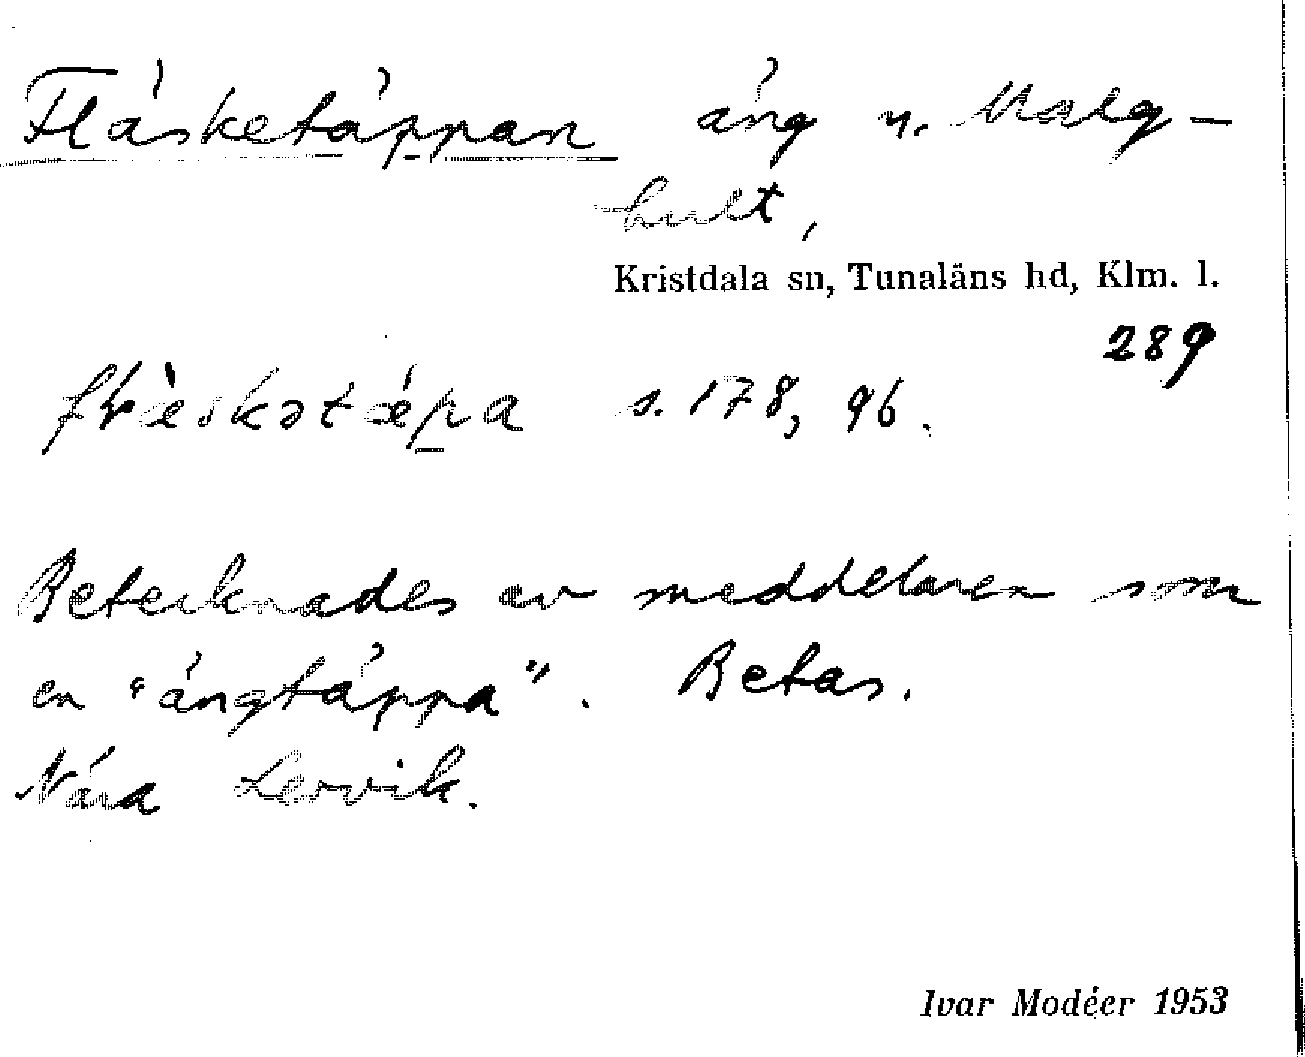 Fläsketäppan äng n. Malg-
hult,
Kristdala sn, Tunaläns hd, Klm. l.
289
flæ̀skətǽpa s. 178, 96.
Betecknades av meddelaren som
en "ängtäppa". Betas.
Nära Lervik.
Ivar Modéer 1953